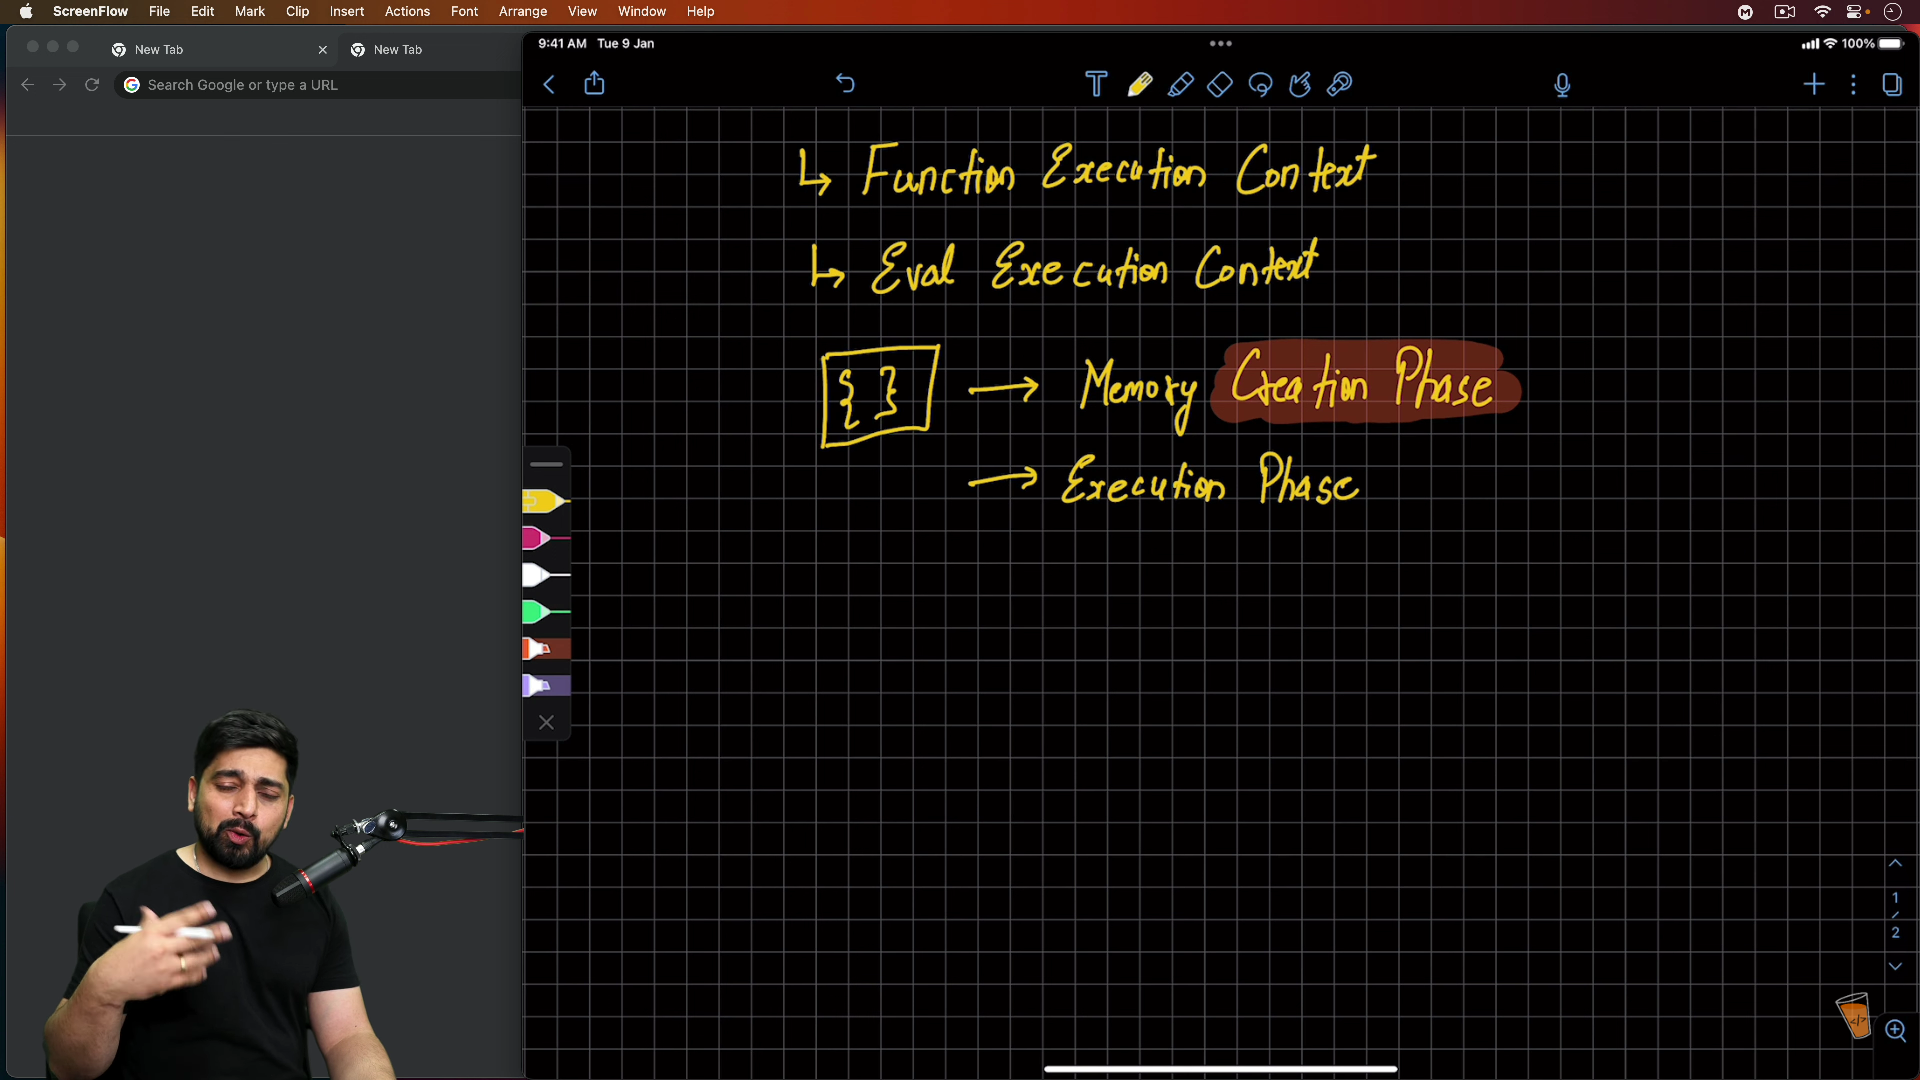 ScreenFlow File Edit Mark Clip Insert Actions Font Arrange View Window Help
New Tab
New Tab
Search Google or type a URL
9:41 AM Tue 9 Jan
100%
↳ Function Execution Context
↳ Eval Execution Context
{ } → Memory Creation Phase
→ Execution Phase
1
/
2
</>